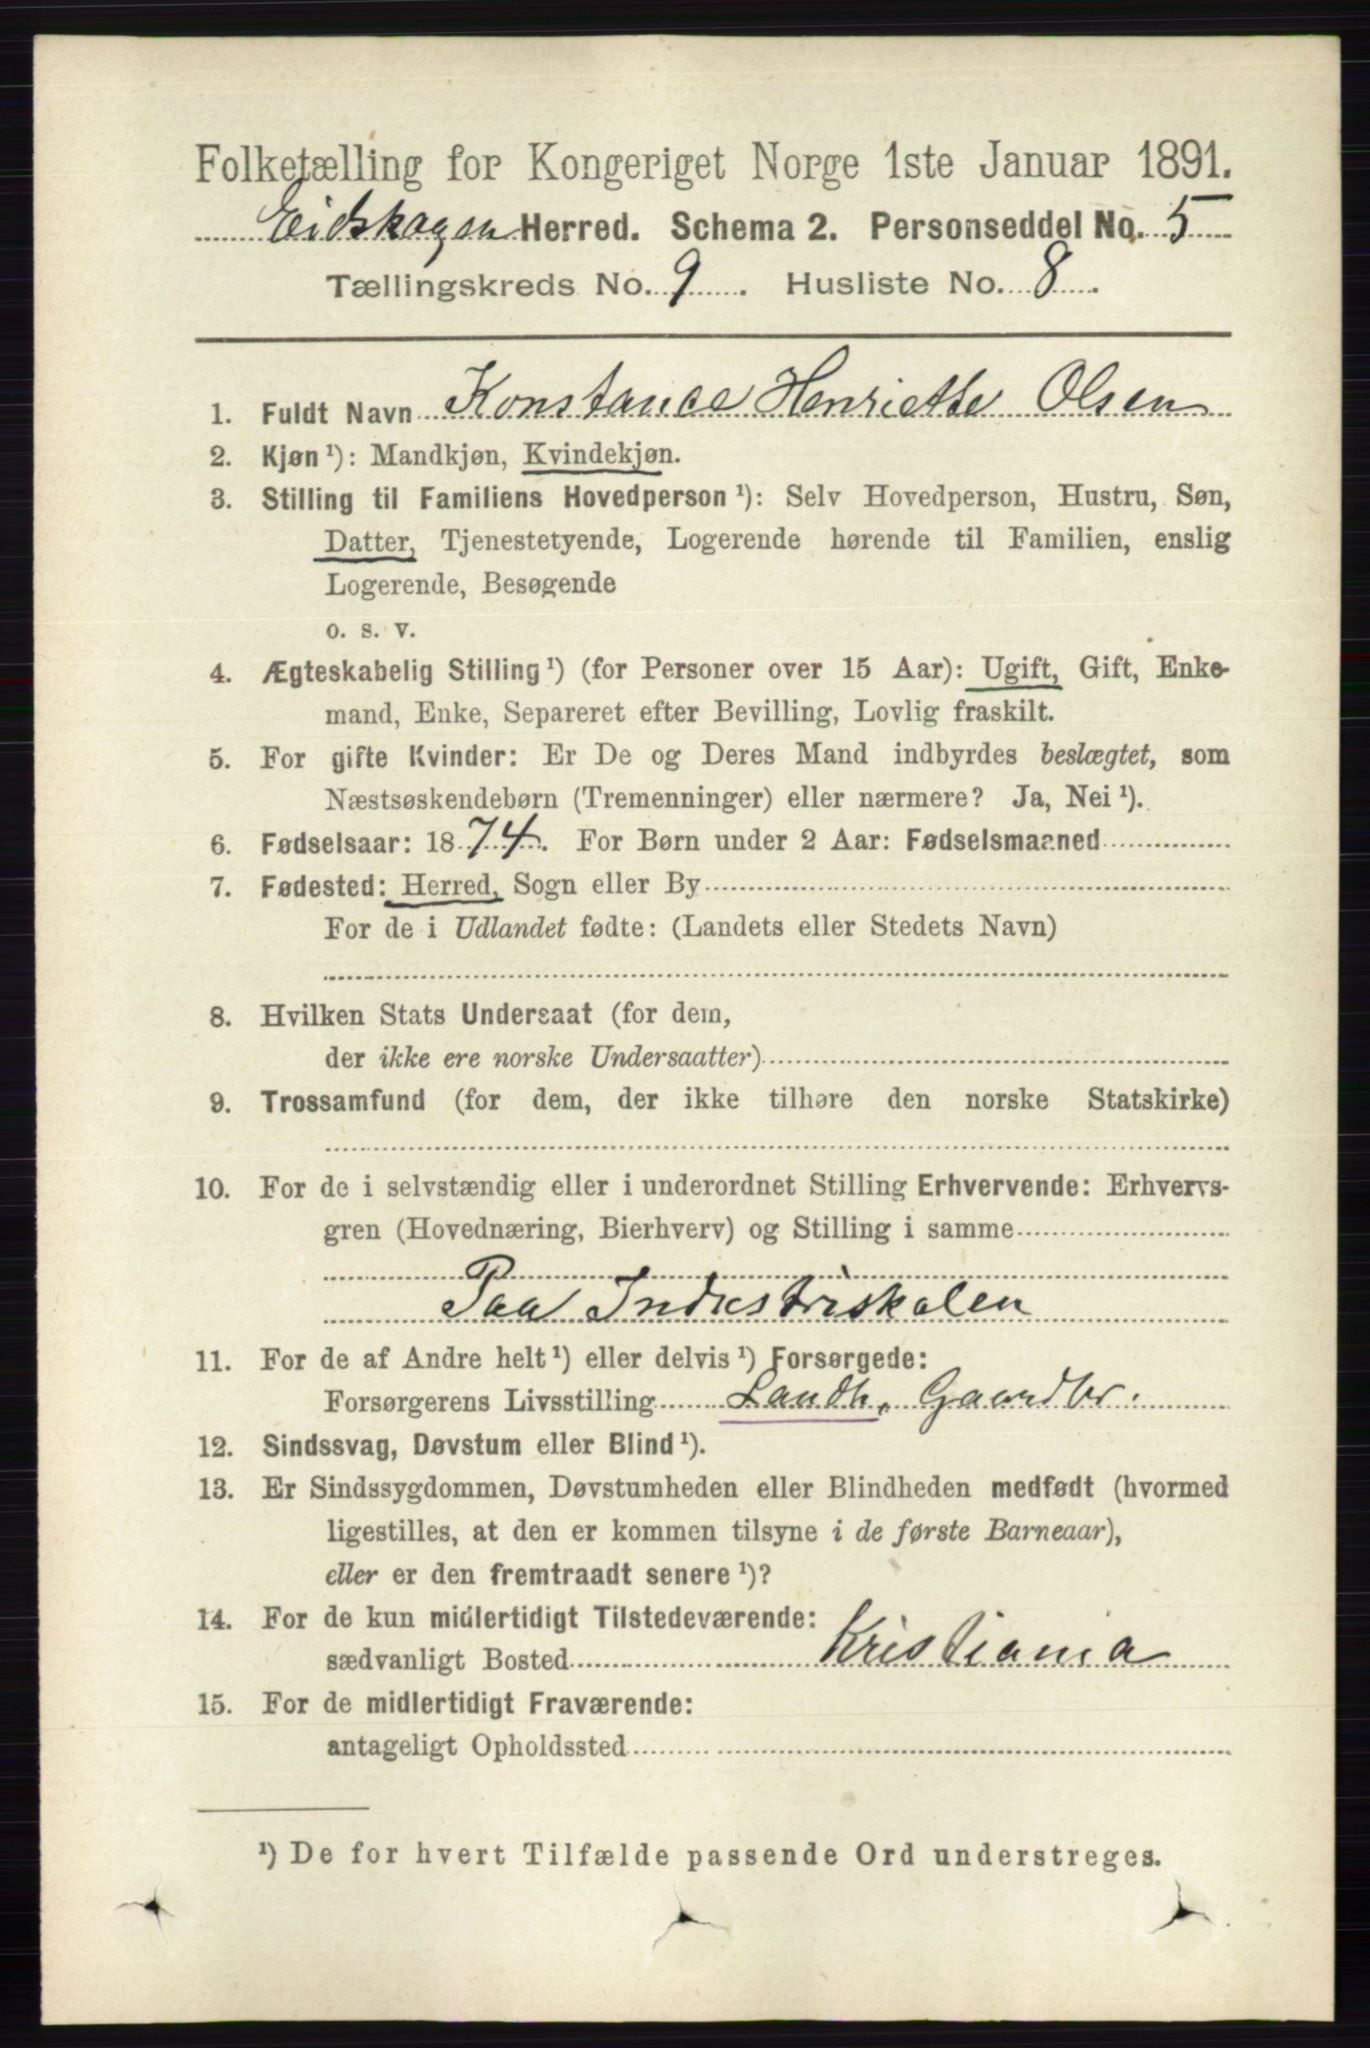 Folketælling for Kongeriget Norge 1ste Januar 1891.
Eidskogen Herred. Schema 2. Personseddel No. 5
Tællingskreds No. 9. Husliste No. 8.
1. Fuldt Navn Konstance Henriette Olsen
2. Kjøn ¹): Mandkjøn, Kvindekjøn.
3. Stilling til Familiens Hovedperson ¹): Selv Hovedperson, Hustru, Søn,
Datter, Tjenestetyende, Logerende hørende til Familien, enslig
Logerende, Besøgende
o. s. v.
4. Ægteskabelig Stilling ¹) (for Personer over 15 Aar): Ugift, Gift, Enke-
mand, Enke, Separeret efter Bevilling, Lovlig fraskilt.
5. For gifte Kvinder: Er De og Deres Mand indbyrdes beslægtet, som
Næstsøskendebørn (Tremenninger) eller nærmere? Ja, Nei ¹).
6. Fødselsaar: 1874. For Børn under 2 Aar: Fødselsmaaned
7. Fødested: Herred, Sogn eller By
For de i Udlandet fødte: (Landets eller Stedets Navn)
8. Hvilken Stats Undersaat (for dem,
der ikke ere norske Undersaatter)
9. Trossamfund (for dem, der ikke tilhøre den norske Statskirke)
10. For de i selvstændig eller i underordnet Stilling Erhvervende: Erhvervs-
gren (Hovednæring, Bierhverv) og Stilling i samme
Paa Industriskolen
11. For de af Andre helt ¹) eller delvis ¹) Forsørgede:
Forsørgerens Livsstilling Landh. Gaardbr.
12. Sindssvag, Døvstum eller Blind ¹).
13. Er Sindssygdommen, Døvstumheden eller Blindheden medfødt (hvormed
ligestilles, at den er kommen tilsyne i de første Barneaar),
eller er den fremtraadt senere ¹)?
14. For de kun midlertidigt Tilstedeværende:
sædvanligt Bosted Kristiania
15. For de midlertidigt Fraværende:
antageligt Opholdssted
¹) De for hvert Tilfælde passende Ord understreges.